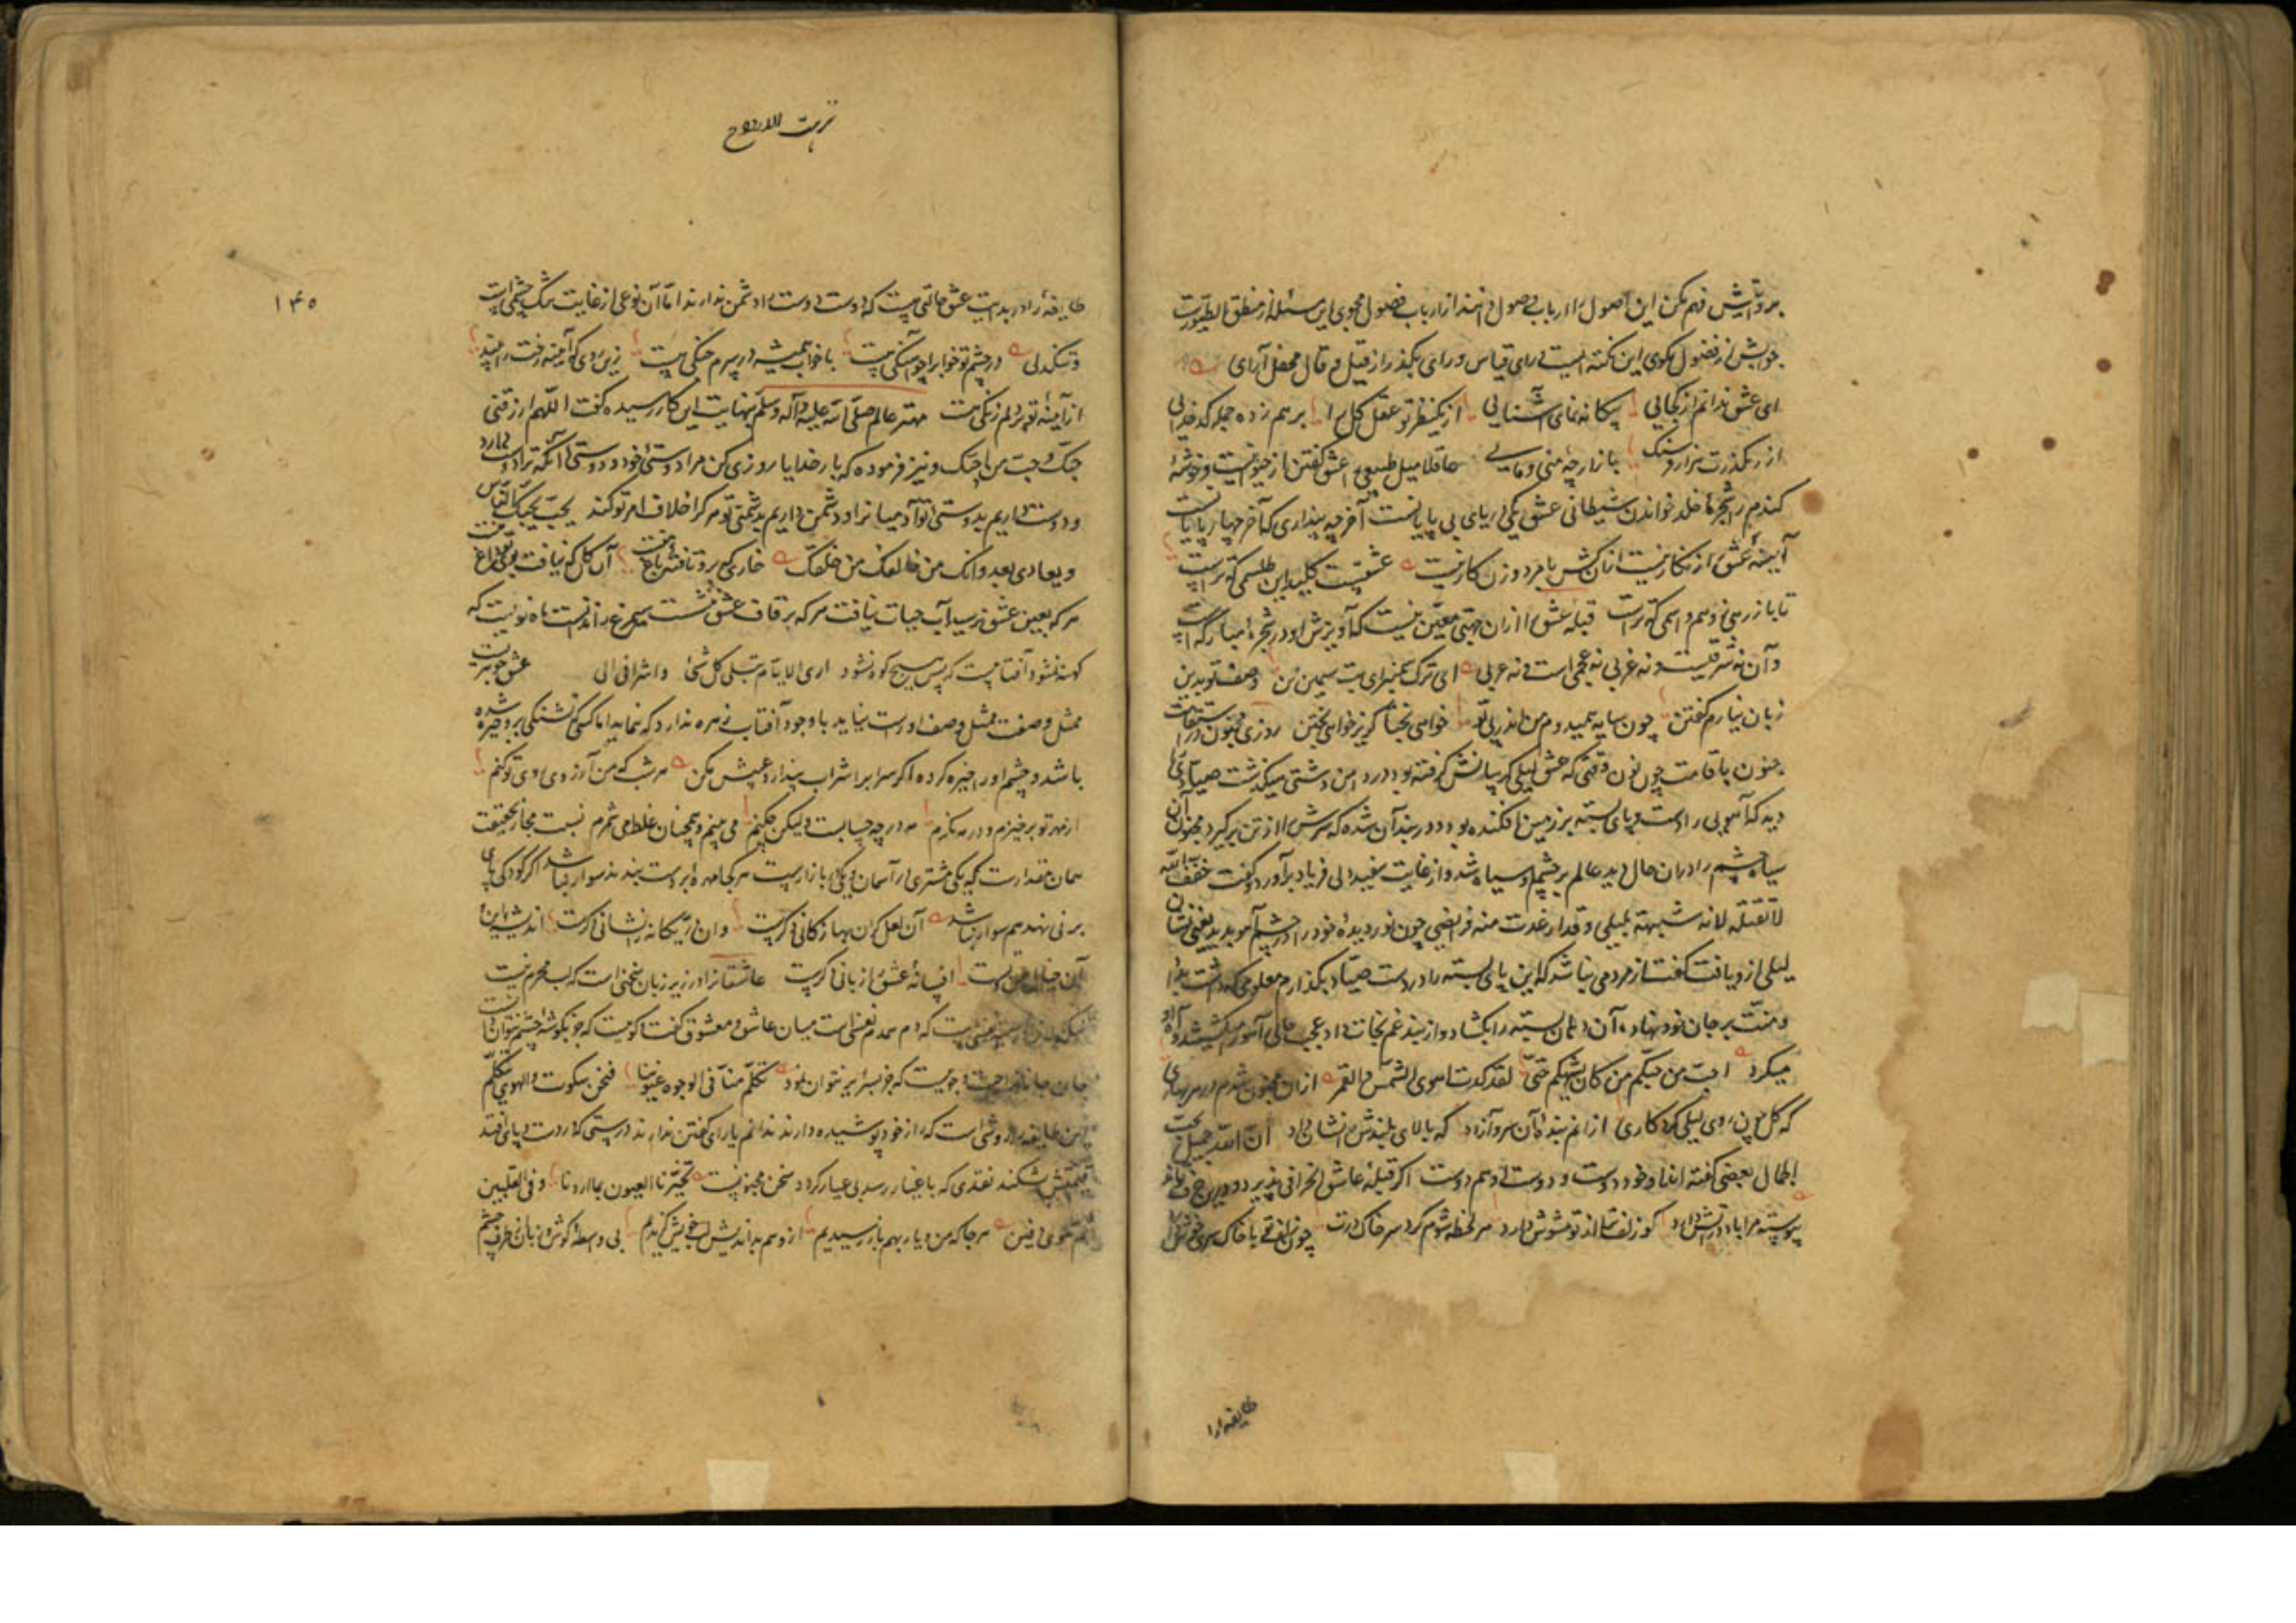 بر وآتش فهم مکن این اصول را ارباب وصول دانند از ارباب فضول مجوی این مسئله از منطق الطیورست
جوابش از فضول مکوی این نکته ایست ورای قیاس و رای بگذر از قیل و قال محفل آرای
ای عشق ندانم از کجایی بیکانه نمای آشنایی از یکنظر تو عقل کل را بر هم زده جمله کدخدایی
از رهگذرت هزار فرسنک بازارچه منی و مایی عاقلا میل طبیعی را عشق گفتن از حیوانیست و خوشهٔ
کندم را شجرهٔ خلد خواندن شیطانی عشق یکی دریای بی پایانست آخر چه پنداری که آخر چهارپایانست
آیینهٔ عشق از نکار نیست ازان کش با مرد و زن کار نیست عشقست کلید این طلسمی که تراست
تا باز رهی ز وهم و اسمی که تراست قبله عشق را ازان جهتی معین نیست که آویزش او در شجرهٔ مبارکه است
و آن نه شرقیست و نه غربی نه عجمی است و نه عربی ای ترک بت سیمین تن وصف تو بدین
زبان نیارم گفتن چون سایه همیدوم من اندر پی تو خواهی بخشا کریز خواهی بختن روزی مجنون در
جنون با قامت چون نون وقتی که عشق لیلی گریبانش گرفته بود در دامن دشتی میگذشت صیادی را
دید که آهویی را دست و پای بسته بر زمین افکنده بود و در بند آن شده که سرش را از تن برگیرد مجنون آن
سیاه چشم را دران حال دید عالم بر چشم او سیاه شد و از غایت بیدلی فریاد برآورد و گفت خفف الله
لا تقتله لانه شبیهة بلیلی و قدار عدت منه فرایصی چون نور دیدهٔ خود را در چشم آهو بدید یعنی نشان
لیلی از و یافت گفت از مردمی نباشد که این پای بسته را در دست صیاد بگذارم معلومی که داشت بداد
و منت بر جان خود نهاد و آن دهان بسته را بکشاد و از بند غم نجات داد عجب حالی آهو میکشید و او آه
میکرد احب من حبکم من کان یشبهکم حتی لقد کدت اهوی الشمس و القمر ازان مجنون شدم در هر بهاری
که گل چون روی لیلی کرد کاری ازانم بندهٔ آن سرو آزاد که بالای بلندش را نشان داد ان الله جمیل یحب
الجمال بعضی گفته اند او خود دوست و دوست او هم دوست اگر قبله عاشق انحرافی پذیرد
پیوسته مرا باد در آتش دارد کو زلف ترا از تو مشوش دارد هر لحظه شوم گرد سر خاک درت چون زلف تو با خاک سری خوش
طایفه را
نزهت الارواح
۱۴۵
طایفهٔ را در بدایت عشق حالتی هست که دوست دوست را دشمن ندارند اما آن نوعی از غایت تنگ چشمی است
و تنکدلی در چشم تو خواب را چو آهنگی هست با خواب همیشه در سرم جنگی هست زین روی که آیینه رخت را بیند
از آینهٔ تو بر دلم زنکی هست مهتر عالم صلی الله علیه و آله و سلم بنهایت این کار رسیده گفت اللهم ارزقنی
حبک و حب من احبک و نیز فرموده که بار خدایا روزی کن مرا دوستی خود و دوستی آنکه ترا دوست دارد
و دوست داریم بدوستی تو آدمیانرا و دشمن داریم بدشمنی تو هر کرا خلاف امر تو کند یحب بحبک الناس
و یعادی بعداوتک من خالفک من خلقک خاری که برو تافته باغ منست آن گل که نیافت بوی تو داغ منست
هر که بعین عشق نرسید آب حیات نیافت هر که بر قاف عشق ننشست سیمرغ ندانست ماه نو نیست که
کهنه نشود آفتابیست که پس هیچ کوه نشود اری الایام تبلی کل شیء و اشراقی الی عشق جوهریست
مثل و صفت مثل وصف او راست نیاید با وجود آفتاب زهره ندارد که نماید اما کسی که تشنگی برو چیره شده
باشد و چشم او را خیره کرده اگر سراب را شراب پندارد عیبش مکن هر شب که من آرزوی روی تو کنم
از مهر تو برخیزم و در مه نکرم مه در چه حسابست ولیکن چکنم می بینم و همچنان غلط می شمرم نسبت مجاز بحقیقت
همان مقدارست که یکی مشتری در آسمان و یکی در بازارست هر کجا مهرهٔ بر دست بندند سوار نباشد اگر کودکی پای
بر نی نهد هم سوار نباشد آن لعل گران بها ز کانی دگرست وان در یگانه را نشانی دگرست اندیشه این و
آن خیال من و تست افسانهٔ عشق را زبانی دگرست عاشقانرا در زیر زبان سخنی است که لب محرم نیست
که دم همدم نیست میان عاشق و معشوق گفت و گوییست که جز بگوشهٔ چشم نتوان دانست
جان جانانرا جست و جوییست که جز بسر ابرو نتوان نمود تکلم منا فی الوجوه عیوننا فنحن سکوت و الهوی یتکلم
این طایفه را روشی است که از خود پوشیده دارند ندانم یارای گفتن ندارند درستی که از دست و پای افتد
قیمتش بشکند نقدی که باغیار رسد بی عیار گردد سخن محبوبیست تخبرنا العیون بما اردنا و فی القلبین
ثم هوی دفین هر جا که من و یار بهم باز رسیدیم از وهم بداندیش لب خویش گزیدیم بی واسطهٔ گوش و زبان از طرف چشم